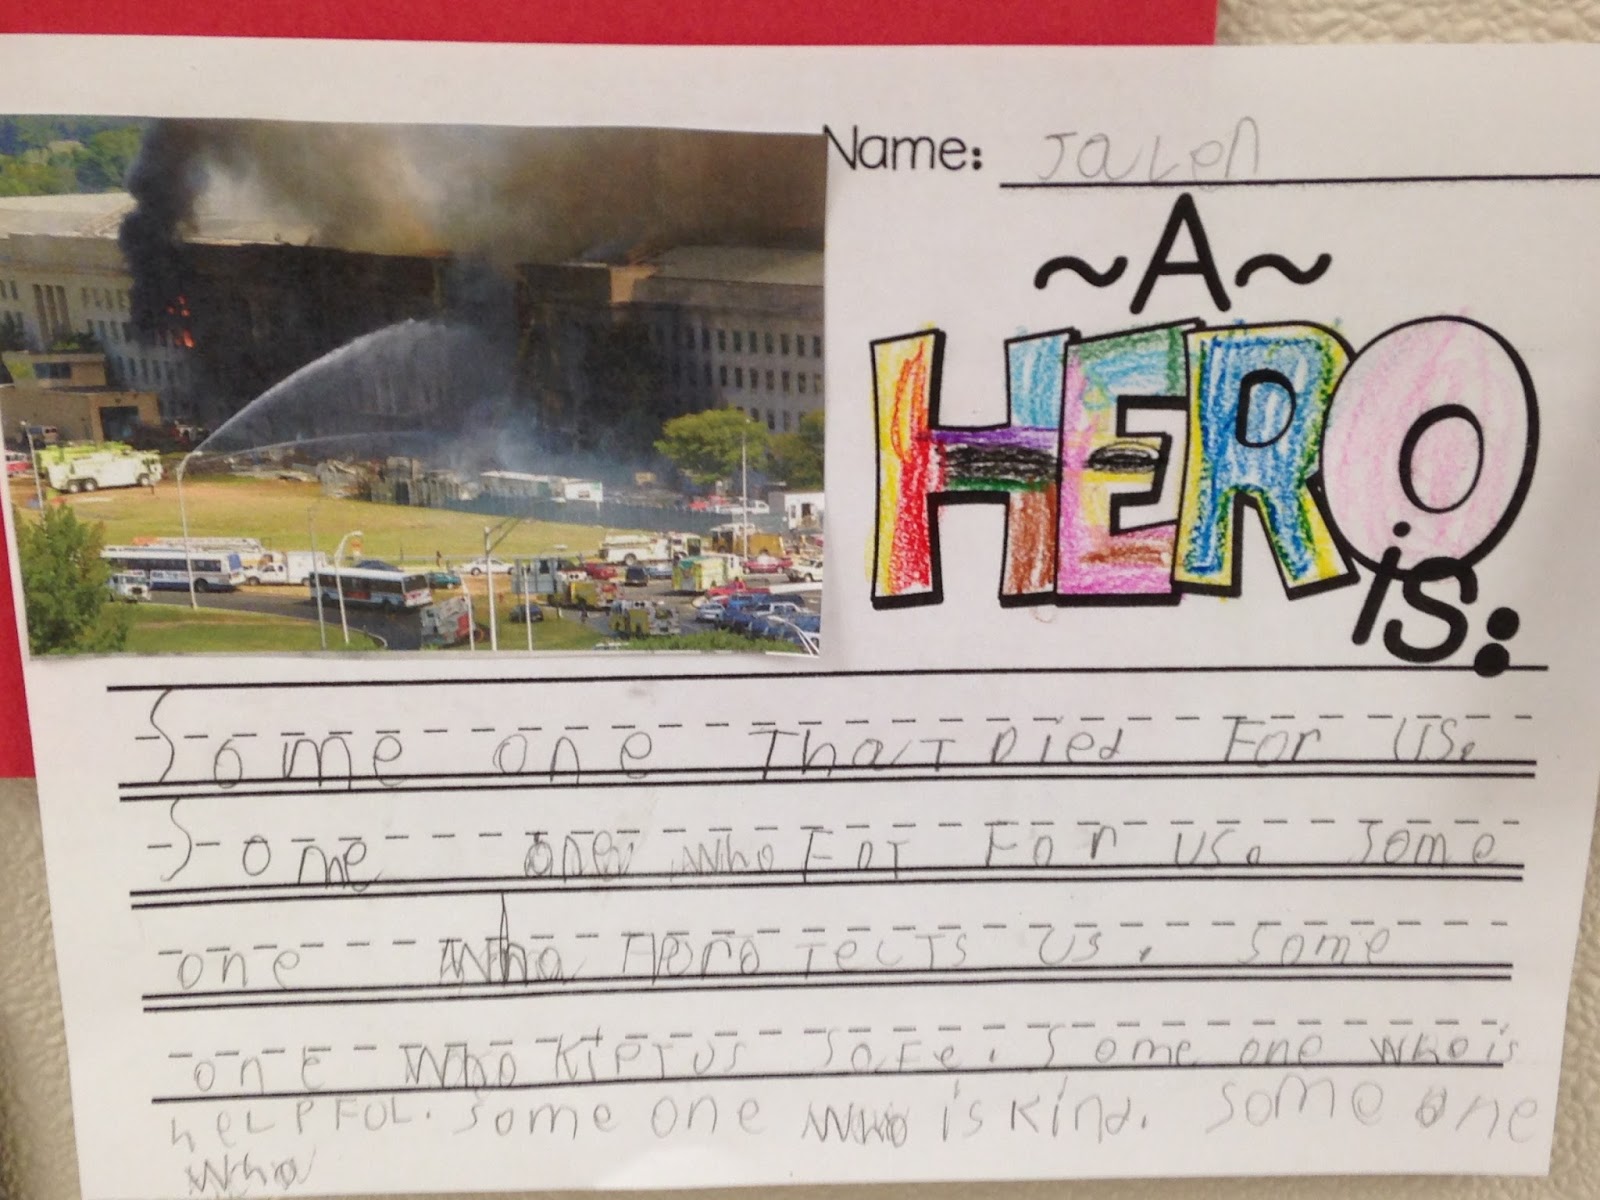 Name: Jalen
~A~
HERO
is:
Some one That Died For US.
Some one who FoT For us. Some
one who Pero Tects Us. Some
one who KiepT us Safe. Some one who is
helpFul. Some one who is Kind. Some one
who